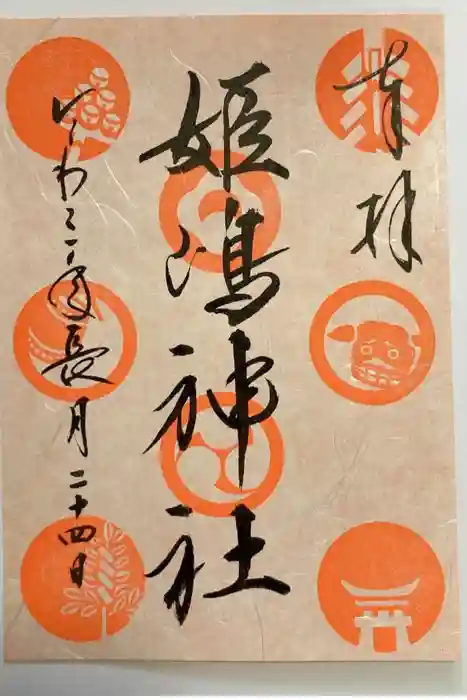 奉拝
姫嶋神社
令わ三年長月二十四日